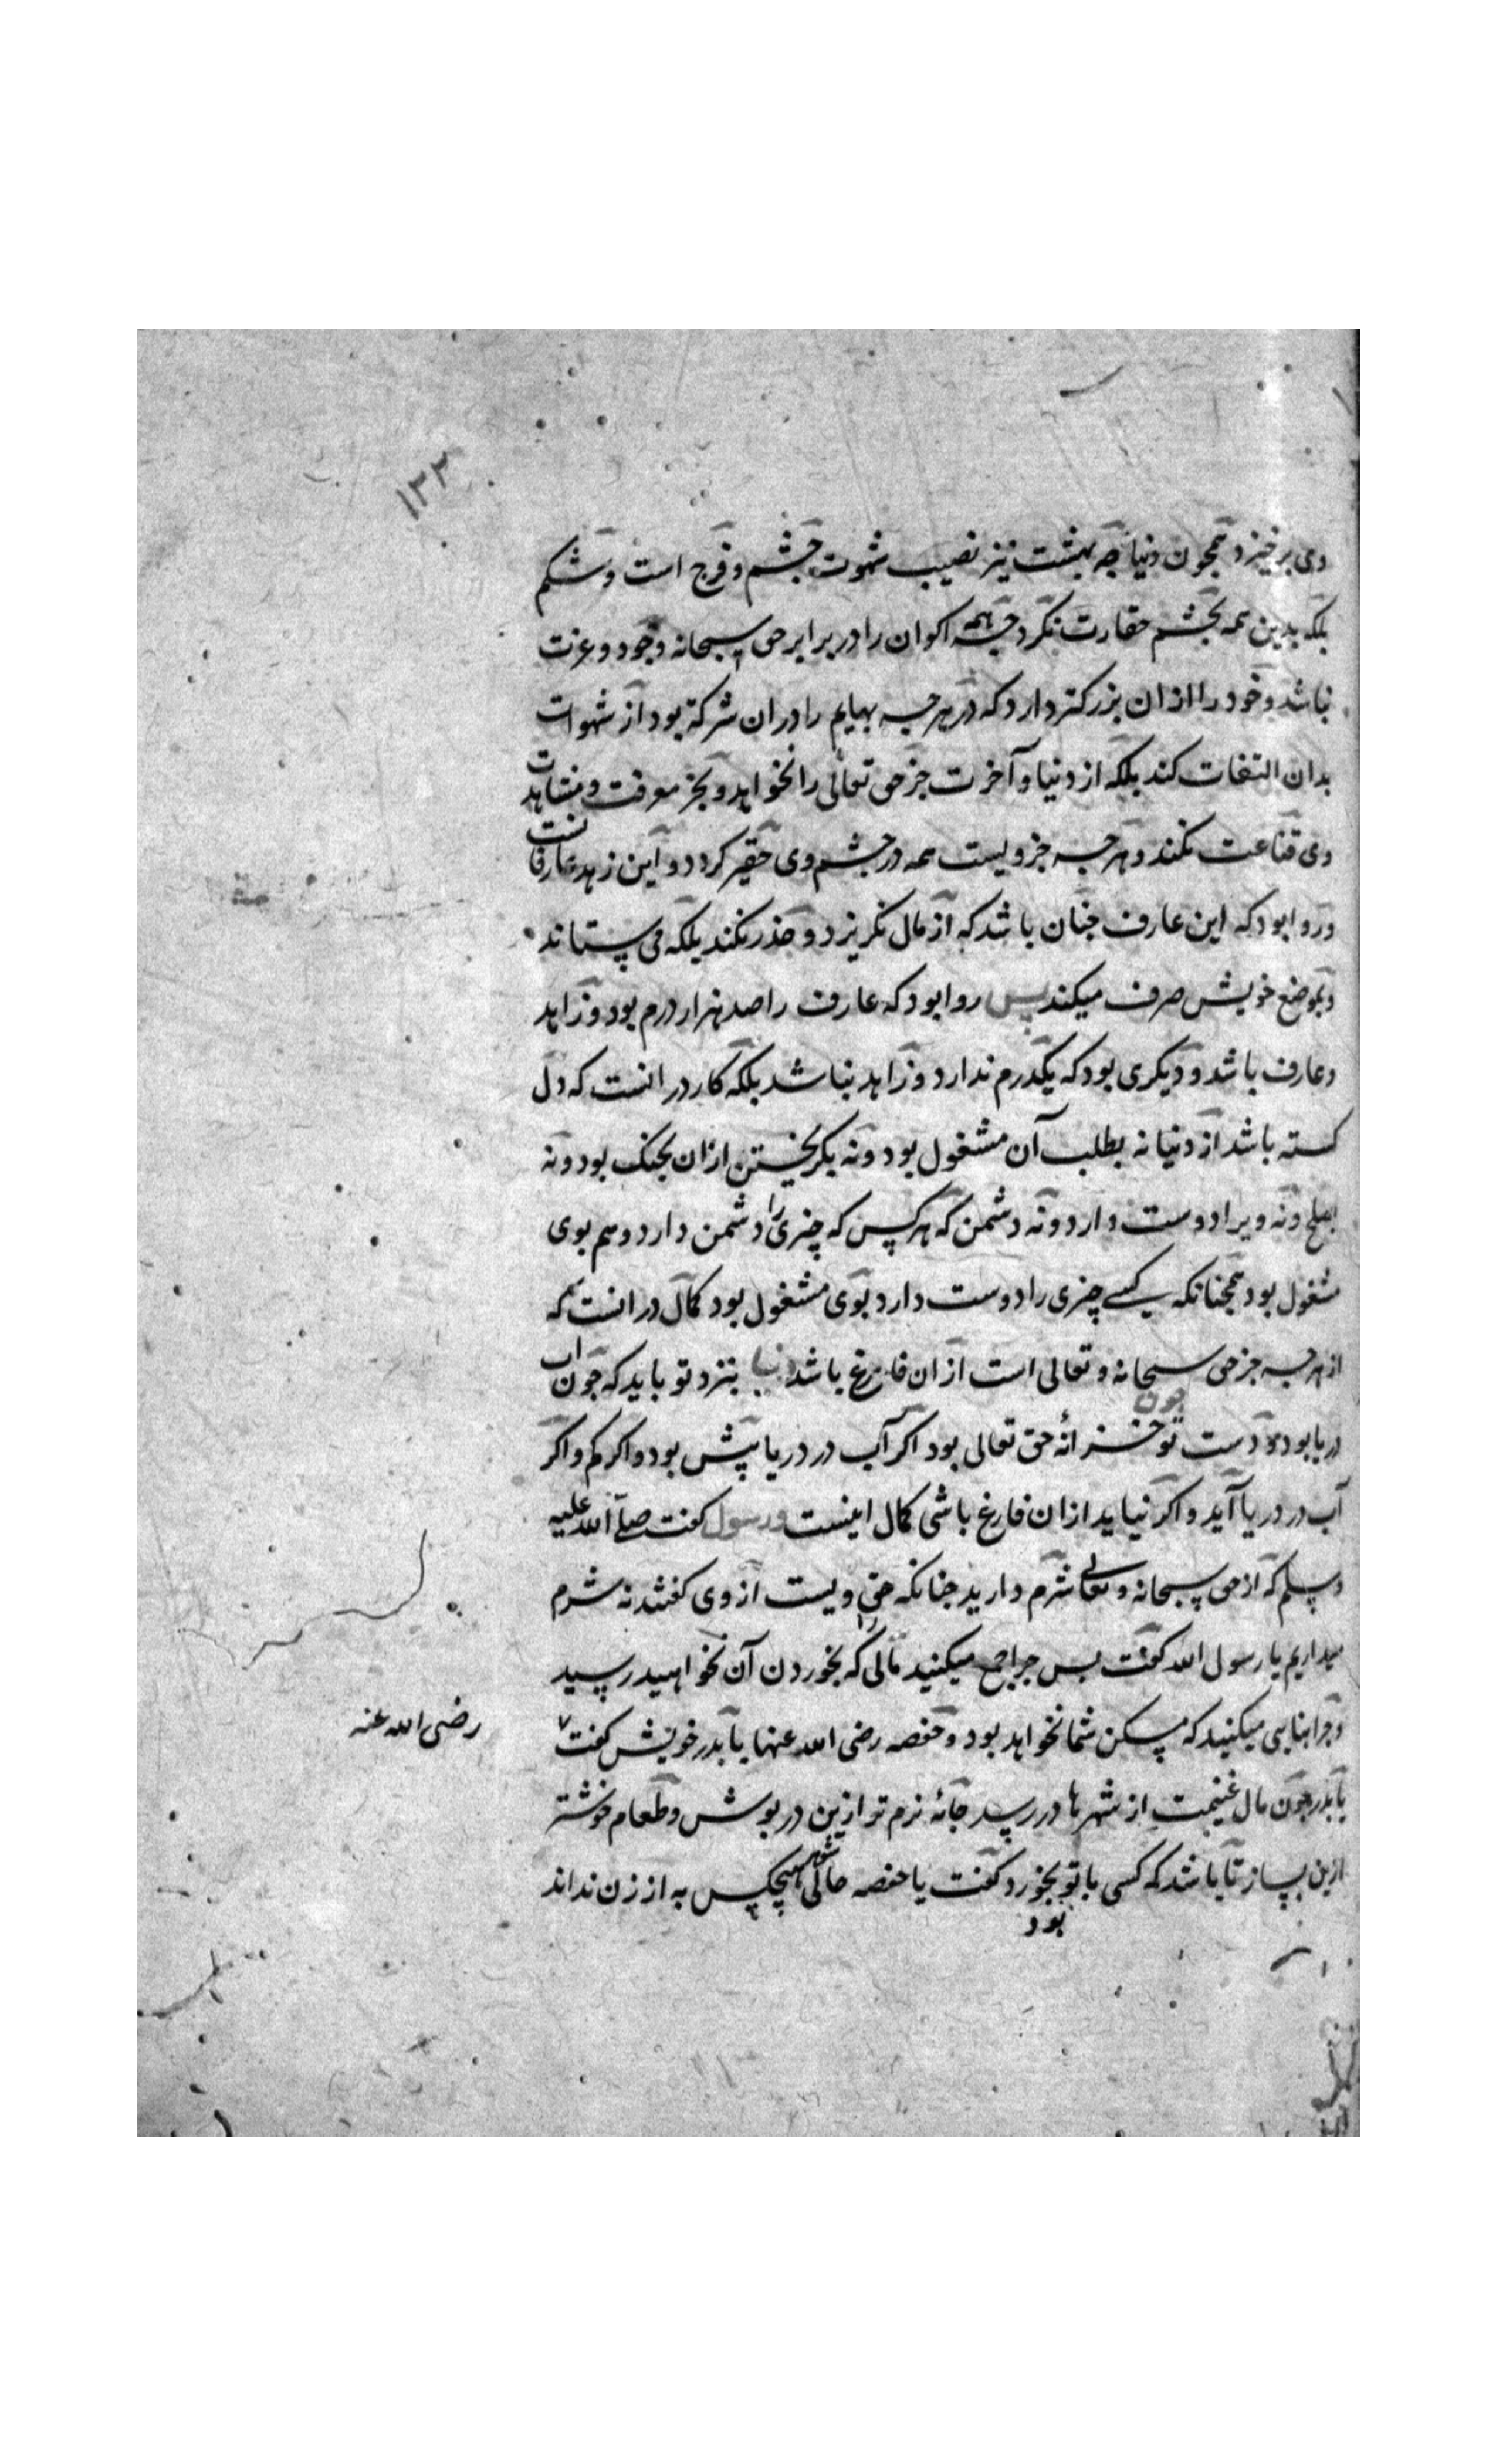 ۱۳۳
وی برخیزد همچون دنیا چه بهشت نیز نصیب شهوت چشم و فرج است و شکم
بلکه بدین همه بچشم حقارت نکرد چه همه اکوان را در برابر حق سبحانه وجود و عزت
نباشد و خود را از ان بزرکتر دارد که در هرچه بهایم را دران شرکة بود از شهوات
بدان التفات کند بلکه از دنیا و آخرت جز حق تعالی را نخواهد و بجز معرفت و مشاهدت
وی قناعت نکند و هرچه جز ویست همه در چشم وی حقیر کردد و این زهد عارفانست
و روا بود که این عارف چنان باشد که از مال نکریزد و حذر نکند بلکه می ستاند
و بموضع خویش صرف میکند پس روا بود که عارف را صد هزار درم بود و زاهد
و عارف باشد و دیکری بود که یکدرم ندارد و زاهد نباشد بلکه کار در انست که دل
کسته باشد از دنیا نه بطلب آن مشغول بود و نه بکریختن از ان بجنک بود و نه
بصلح و نه ویرا دوست دارد و نه دشمن که هر کس که چیزی را دشمن دارد و هم بوی
مشغول بود همچنانکه کسی چیزی را دوست دارد بوی مشغول بود کمال در انست که
از هرچه جز حق سبحانه و تعالی است از ان فارغ باشد دنیا بنزد تو باید که چون اب
دریا بود و دست تو چون خزانهٔ حق تعالی بود اکر آب در دریا بیش بود و اکر کم و اکر
آب در دریا آید و اکر نیاید از ان فارغ باشی کمال اینست و رسول کفت صلی الله علیه
و سلم که از حق سبحانه و تعالی شرم دارید چنانکه حق ویست از وی کفتند نه شرم
میداریم یا رسول الله کفت بس چرا جمع میکنید مالی را که بخوردن آن نخواهید رسید
و چرا بنایی میکنید که مسکن شما نخواهد بود و حفصه رضی الله عنها با بدر خویش کفت رضی الله عنه
یا بدر چون مال غنیمت از شهرها در رسد جامهٔ نرم تر ازین در بوش و طعام خوشتر
ازین بساز تا باشد که کسی با تو بخورد کفت یا حفصه حال شوهر هیچکس به از زن نداند
بود